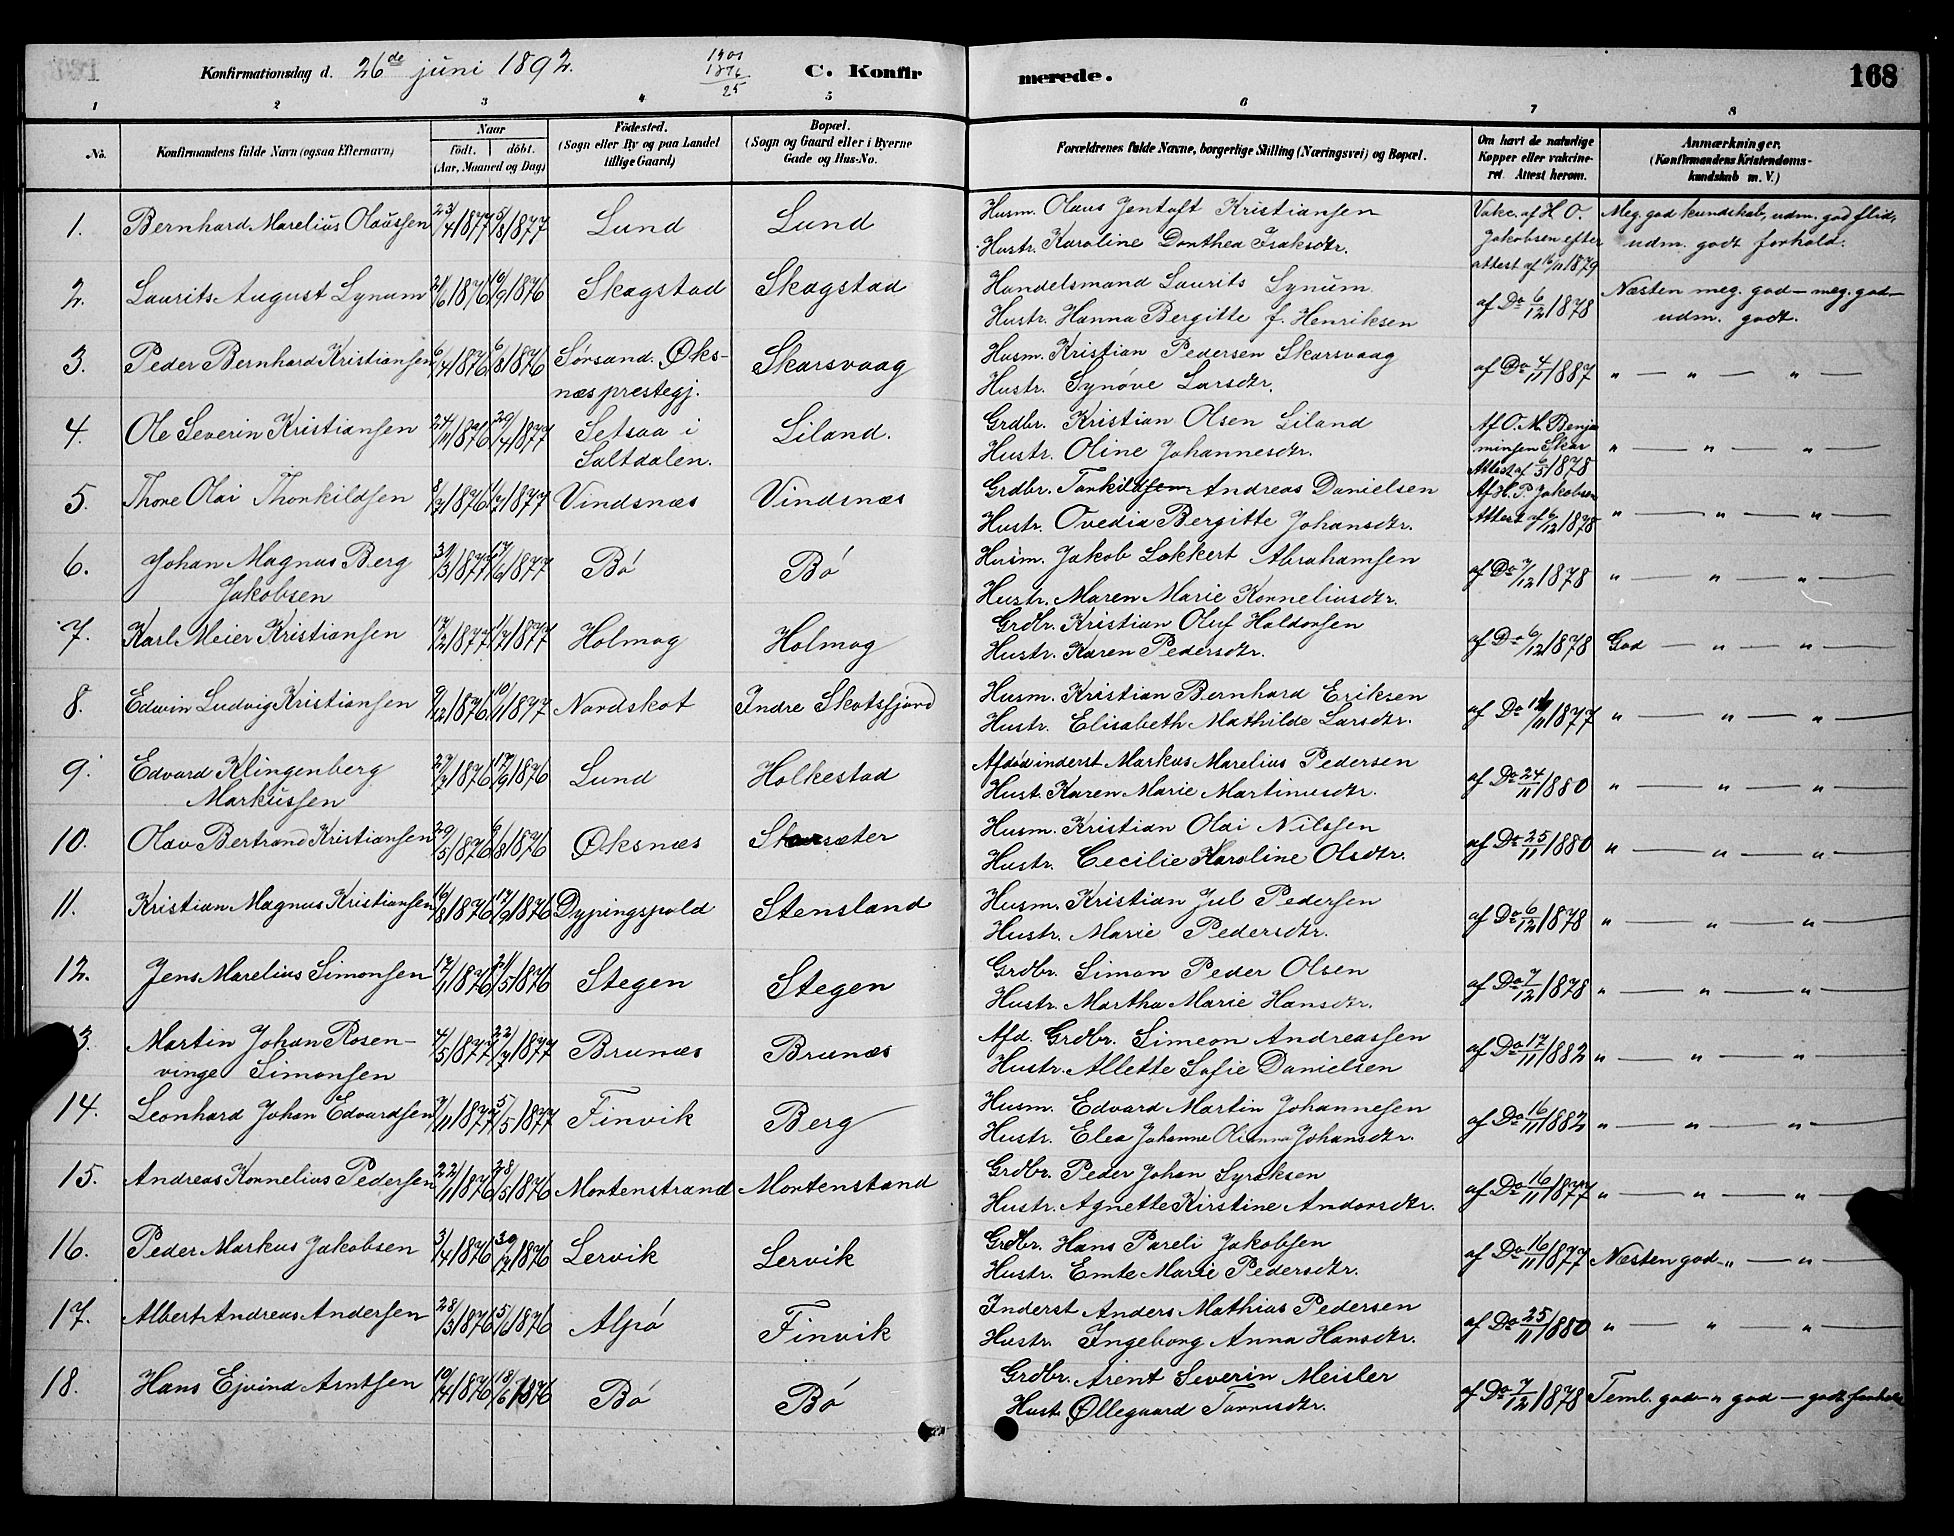 Konfirmationsdag d. 26de juni 1892. C. Konfirmerede. 168
1901
1876
25
1 2 3 4 5 6 7 8
No. Konfirmandens fulde Navn (ogsaa Efternavn) Naar födt. döbt. (Aar, Maaned og Dag) Födested. (Sogn eller By og paa Landet tillige Gaard) Bopæl. (Sogn og Gaard eller i Byerne Gade og Hus-No. Forældrenes fulde Navne, borgerlige Stilling (Næringsvei) og Bopæl. Om havt de naturlige Kopper eller vakcineret. Attest herom. Anmærkninger. (Konfirmandens Kristendomskundskab m. V.)
1. Bernhard Marelius Olaussen 23/4 1877 5/8 1877 Lund Lund Husm. Olaus Jentoft Kristiansen Vakc. af H. O. Meg. god kundskab, udm. god flid,
Hustr. Karoline Dorthea Isaksdtr. Jakobsen efter udm. godt forhold.
attest af 6/11 1879
2. Laurits August Lynum 21/6 1876 10/9 1876 Skagstad Skagstad Handelsmand Laurits Lynum af Do 6/12 1878 Næsten meg. god — meg. god —
Hustr. Hanna Bergitte f. Henriksen udm. godt.
3. Peder Bernhard Kristiansen 6/4 1876 6/8 1876 Sørsand. Øks- Skarsvaag Husm. Kristian Pedersen Skarsvaag af Do 4/11 1887 " — " — " —
næs prestegj. Hustr. Synøve Larsdtr.
4. Ole Severin Kristiansen 24/11 1876 29/4 1877 Setsaa i Liland. Grdbr. Kristian Olsen Liland Af O. M. Benja
Saltdalen. Hustr. Oline Johannesdtr. minsen Skar " — " — " —
Attest af 6/5 1878
5. Thore Olai Thorkildsen 8/7 1876 1/7 1877 Vindsnæs Vindsnæs Grdbr. Torkildsen Andreas Danielsen Af H. P. Jakobsen
Hustr. Ovedia Bergitte Johansdtr. Attest af 6/12 1878 " — " — " —
6. Johan Magnus Berg 31/3 1877 17/6 1877 Bö Bö Husm. Jakob Lokkert Abrahamsen af Do 7/12 1878 " — " — " —
Jakobsen Hustr. Maren Marie Korneliusdtr.
7. Karl Meier Kristiansen 17/2 1877 1/7 1877 Holmog Holmog Grdbr. Kristian Oluf Haldorsen af Do 6/12 1878 God — " — " —
Hustr. Karen Pedersdtr.
8. Edvin Ludvig Kristiansen 9/12 1876 10/11 1877 Nordskot Indre Skotsfjord Husm. Kristian Bernhard Eriksen af Do 1877 " — " — " —
Hustr. Elisabeth Mathilde Larsdtr.
9. Edvard Klingenberg 27/7 1876 17/9 1876 Lund Holkestad Afdød inderst Markus Marelius Pedersen af Do 24/11 1880 " — " — " —
Markussen Hust. Karen Marie Martinusdtr.
10. Olav Bertrand Kristiansen 29/5 1876 6/8 1876 Øksnæs Skarsæter Husm. Kristian Olai Nilssen af Do 25/11 1880 " — " — "
Hustr. Cecilie Karoline Olsdtr.
11. Kristian Magnus Kristiansen 16/8 1876 17/9 1876 Dypingspold Stensland Husm. Kristian Jul Pedersen af Do 6/12 1878 " — " — " —
Hustr. Marie Pedersdtr.
12. Jens Marelius Simonsen 17/1 1876 21/5 1876 Stegen Stegen Grdbr. Simon Peder Olsen af Do 7/12 1878 " — " — " —
Hustr. Martha Marie Hansdtr.
13. Martin Johan Rosen- 4/5 1877 22/7 1877 Brunæs Brunæs Afd. Grdbr. Simeon Andreassen af Do 17/11 1882 " — " — " —
vinge Simonsen Hustr. Allette Sofie Danielsen
14. Leonhard Johan Edvardsen 7/11 1877 5/5 1877 Finvik Berg Husm. Edvard Martin Johannesen af Do 16/11 1882 " — " — " —
Hustr. Elea Johanne Olianna Johansdtr.
15. Andreas Kornelius Pedersen 22/11 1876 28/5 1876 Mortenstrand Mortenstand Grdbr. Peder Johan Syraksen af Do 16/11 1877 " — " — " —
Hustr. Agnette Kirstine Andorsdtr.
16. Peder Markus Jakobsen 3/4 1876 30/7 1876 Lervik Lervik Grdbr. Hans Pareli Jakobsen af Do 16/11 1877 Næsten god — " — " —
Hustr. Emte Marie Pedersdtr.
17. Albert Andreas Andersen 28/3 1876 5/6 1876 Alpö Finvik Inderst Anders Mathias Pedersen af Do 25/11 1880 " — " — " —
Hustr. Ingeborg Anna Hansdtr.
18. Hans Ejvind Arntsen 19/4 1876 18/6 1876 Bö Bö Grdbr. Arent Severin Meisler af Do 7/12 1878 Teml. god — " god — godt forhold
Hust. Øllegaard Torrisdtr.